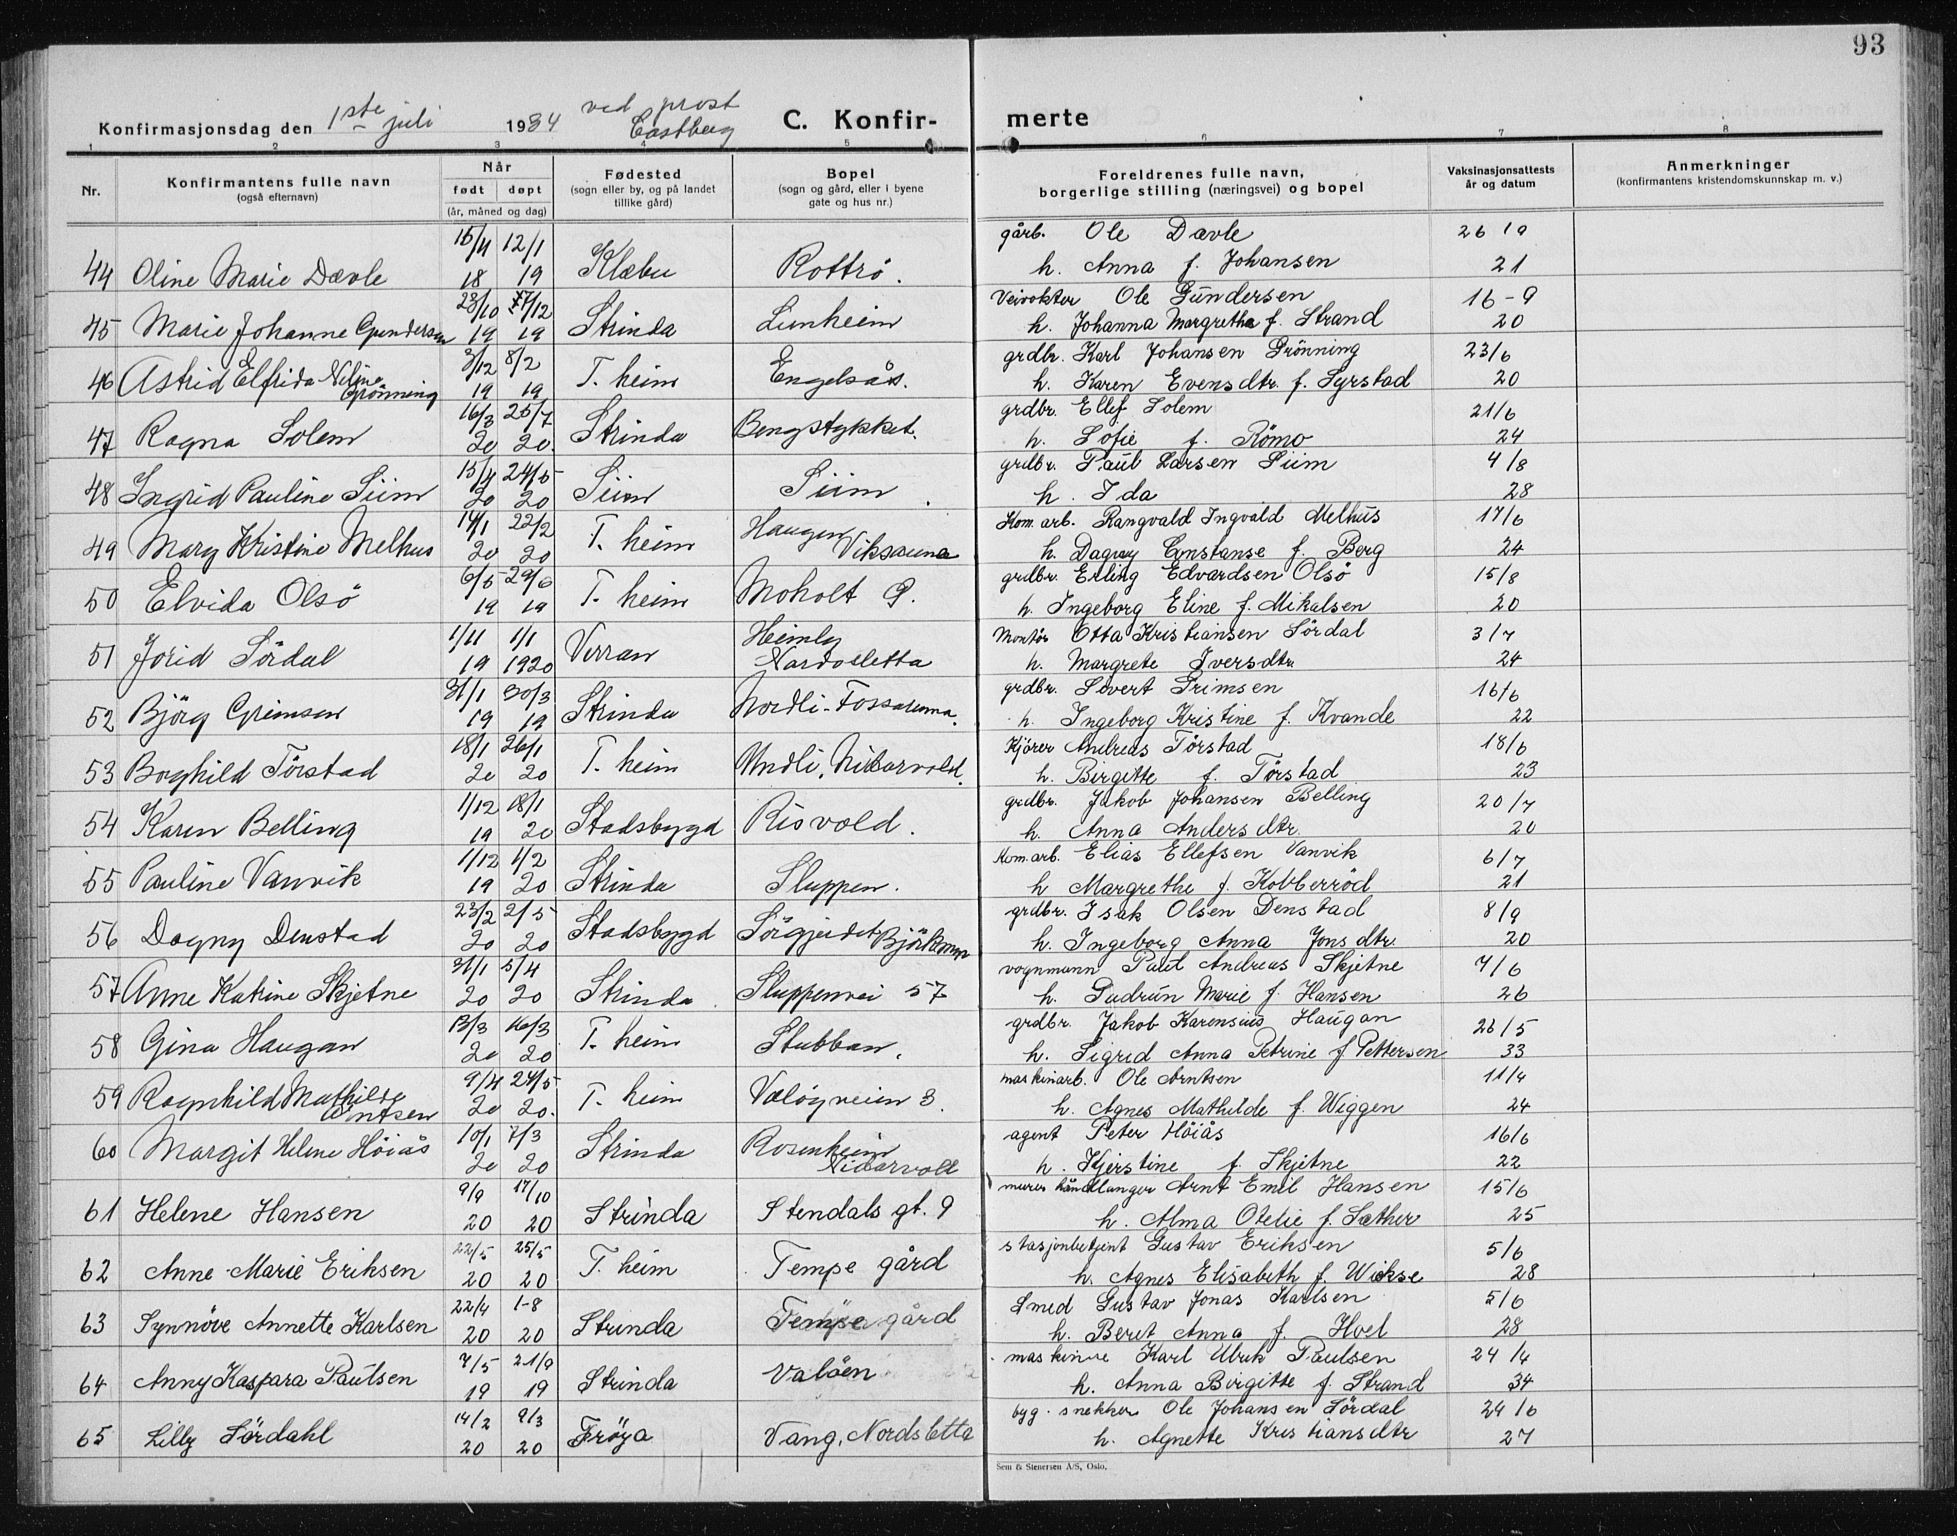 93
Konfirmasjonsdag den 1ste juli 1934 ved prost Castberg C. Konfir- merte
1 2 3 4 5 6 7 8
Nr. Konfirmantens fulle navn (også efternavn) Når født døpt (år, måned og dag) Fødested (sogn eller by, og på landet tillike gård) Bopel (sogn og gård, eller i byene gate og hus nr.) Foreldrenes fulle navn, borgerlige stilling (næringsvei) og bopel Vaksinasjonsattests år og datum Anmerkninger (konfirmantens kristendomskunnskap m. v.)
15/4 12/1 gårb. Ole Dævle 26 19
44 Oline Marie Dævle 18 19 Klæbu Rottrö. h. Anna f. Johansen 21
23/10 27/12 Veivokter Ole Gundersen 16-9
45 Marie Johanne Gundersen 19 19 Strinda Lunheim h. Johanna Margrethe f. Strand 20
3/12 8/2 grdbr. Karl Johansen Grönning 23/6
46 Astrid Elfrida Neline Grönning 19 19 T. heim Engelsås. h. Karen Evensdtr. f. Syrstad 20
16/3 25/7 grdbr. Ellef Solem 21/6
47 Ragna Solem 20 20. Strinda Bengstykket. h. Sofie f. Römo 24
15/4 24/5 grdbr. Paul Larsen Siim 4/8
48 Ingrid Pauline Siim 20 20 Siim Siim. h. Ida 28
14/1 22/2 Kom. arb. Rangvald Ingvald Melhus 17/6
49 Mary Kristine Melhus 20 20 T. heim Haugen Viksauna h. Dagny Constanse f. Berg 24
6/5 29/6 grdbr. Erling Edvardsen Olsö 15/8
50 Elvida Olsö 19 19 T. heim Moholt G. h. Ingeborg Eline f. Mikalsen 20
1/11 1/1 Montör Otto Kristiansen Sördal 3/7
51 Jorid Sördal 19 1920 Verran Heimly Nardosletta h. Margrete Iversdtr. 24
31/1 30/3 grdbr. Sivert Grimsen 16/6
52 Björg Grimsen 19 19 Strinda Nordli-Fossauma. h. Ingeborg Kristine f. Kvande 22
18/1 26/1 Kjörer Andreas Törstad 18/6
53 Borghild Törstad 20 20 T. heim Undli, Nidarvold. h. Birgitte f. Törstad 23
1/12 18/1 grdbr. Jakob Johansen Belling 20/7
54 Karen Belling 19 20 Stadsbygd Risvold. h. Anna Andersdtr. 20
1/12 1/2 Kom. arb. Elias Ellefsen Vanvik 6/7
55 Pauline Vanvik 19 20 Strinda Sluppen. h Margrethe f. Kobberröd 21
23/2 2/5 grdbr. Isak Olsen Denstad 8/9
56 Dagny Denstad 20 20 Stadsbygd Sörgjeidet Björkmyr h. Ingeborg Anna Jonsdtr. 20
31/1 5/4 vognmann Paul Andreas Skjetne 7/6
57 Anne Katrine Skjetne 20 20 Strinda. Sluppenvei 57 h. Gudrun Marie f. Hansen 26
13/3 16/3 grdbr. Jakob Karensius Haugan 26/5
58 Gina Haugan 20 20 T. heim Stubban. h. Sigrid Anna Petrine f Pettersen 33
9/4 24/5 maskinarb. Ole Arntsen 11/4
59 Ragnhild Mathilde Arntsen 20 20. T. heim Valöyveien 3. h. Agnes Mathilde f. Wiggen 24
10/1 7/3 agent Peter Höiås 16/6
60 Margit Helene Höiås 20 20 Strinda Rosenheim Nidarvoll h. Kjerstine f. Skjetne 22
9/9 17/10 murer håndlanger Arnt Emil Hansen 15/6
61 Helene Hansen 20 20 Strinda Stendals gt. 9 h. Alma Otelie f. Sæther 25
22/5 25/5 stasjonbetjent Gustav Eriksen 5/6
62 Anne-Marie Eriksen 20 20 T. heim Tempe gård h. Agnes Elisabeth f. Wickse 28
22/4 1-8 Smed Gustav Jonas Karlsen 5/6
63 Synnöve Annette Karlsen 20 20 Strinda Tempe gård h. Beret Anna f. Hoel 28
7/5 21/9 maskinne Karl Ulrik Paulsen 24/4
64 Anny Kaspara Paulsen 19 19 Strinda Valöen h. Anna Birgitte f. Strand 34
14/2 9/3 byg. snekker Ole Johansen Sördal 24/6
65 Lilly Sördahl 20 20 Fröya Vang, Nordsletta h. Agnette Kristiansdtr 27
Sem & Stenersen A/S, Oslo.